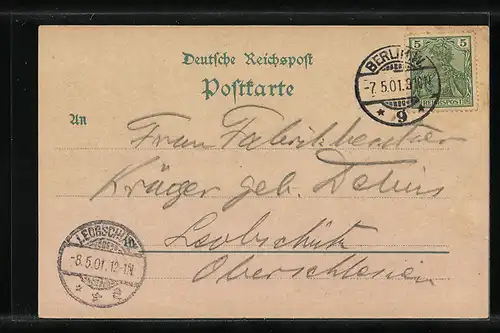 Deutsche Reichspost
Postkarte
An
Frau Fabrikbesitzer
Krüger geb.
Leobschütz
Oberschlesien
BERLIN W
-7 5.01.
* 9 *
5 5
REICHSPOST
LEOBSCHÜTZ
-8.5.01.12-1N